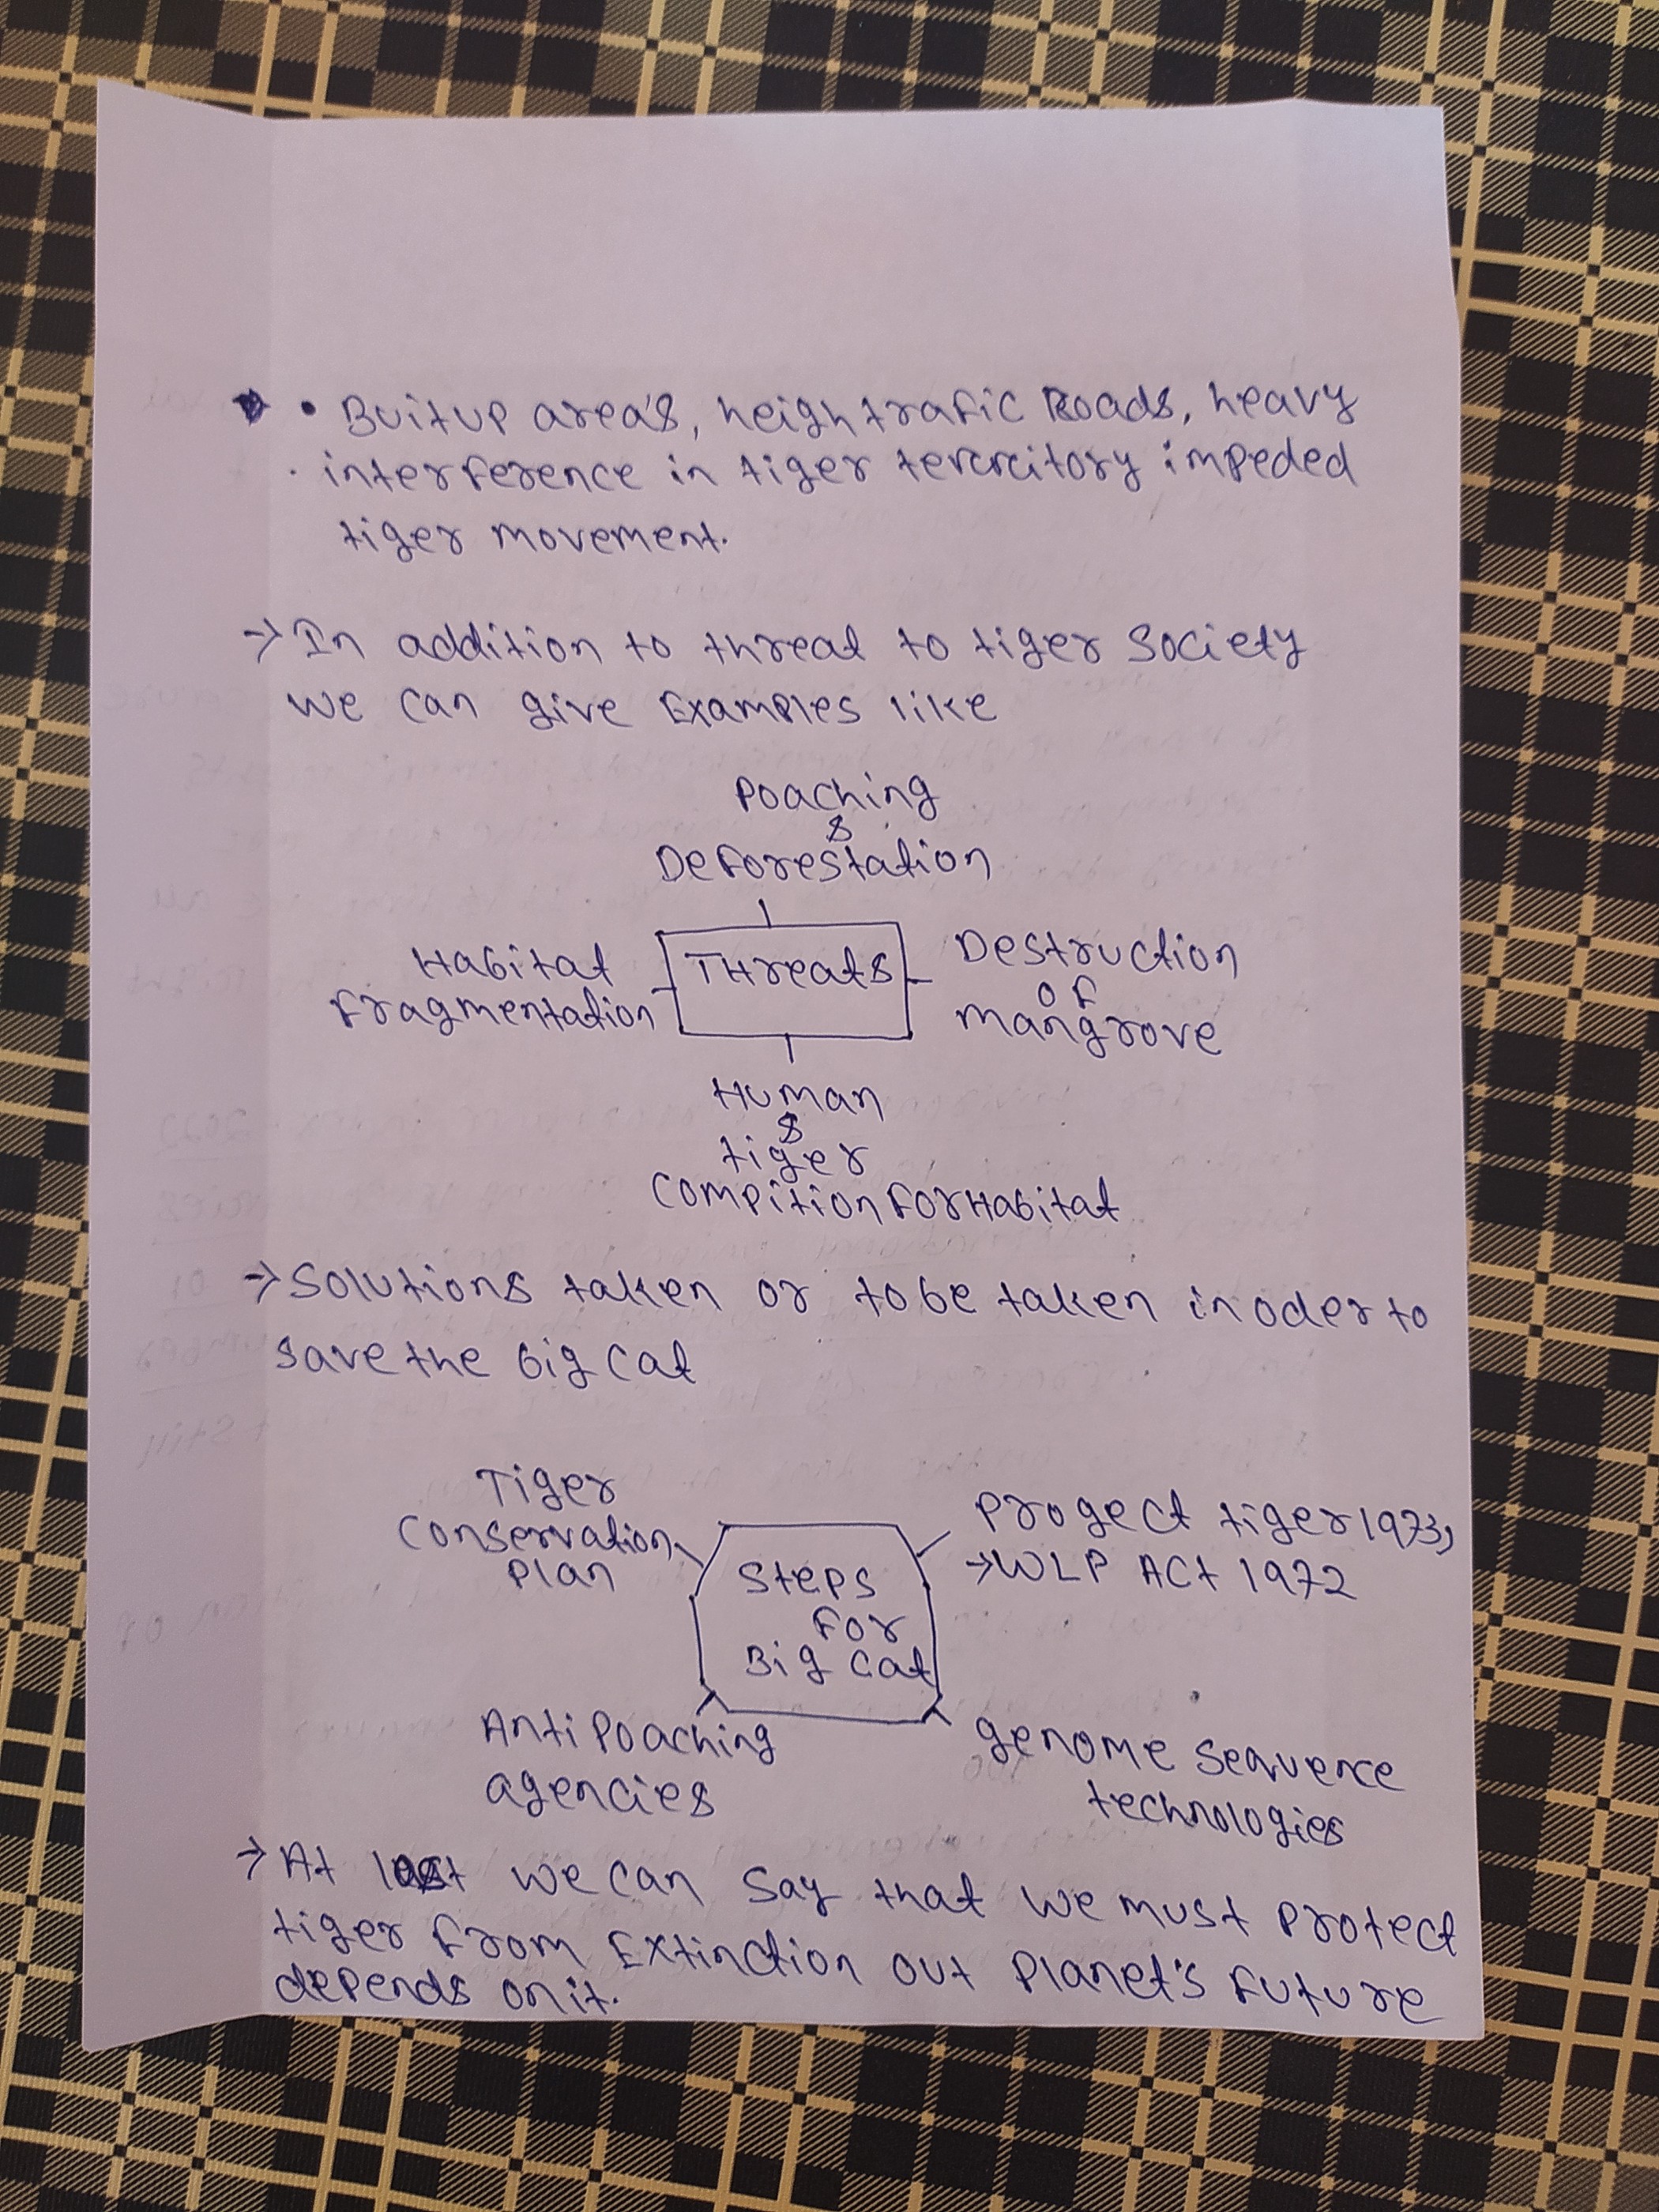 • Builtup area's, heigh trafic Roads, heavy
interference in tiger tercritory impeded
tiger movement.
→ In addition to threat to tiger Society
we can give Examples like
Poaching
&
Deforestation
Habitat
fragmentation
THreats
Destruction
of
mangrove
Human
&
tiger
Compition For Habitat
→ Solutions taken or to be taken in oder to
save the big cat
Tiger
Conservation
Plan
Steps
For
Big Cat
Progect tiger 1973,
→ WLP ACt 1972
Anti Poaching
agencies
genome Sequence
technologies
→ At last we can say that we must protect
tiger from Extinction out Planet's Future
depends on it.